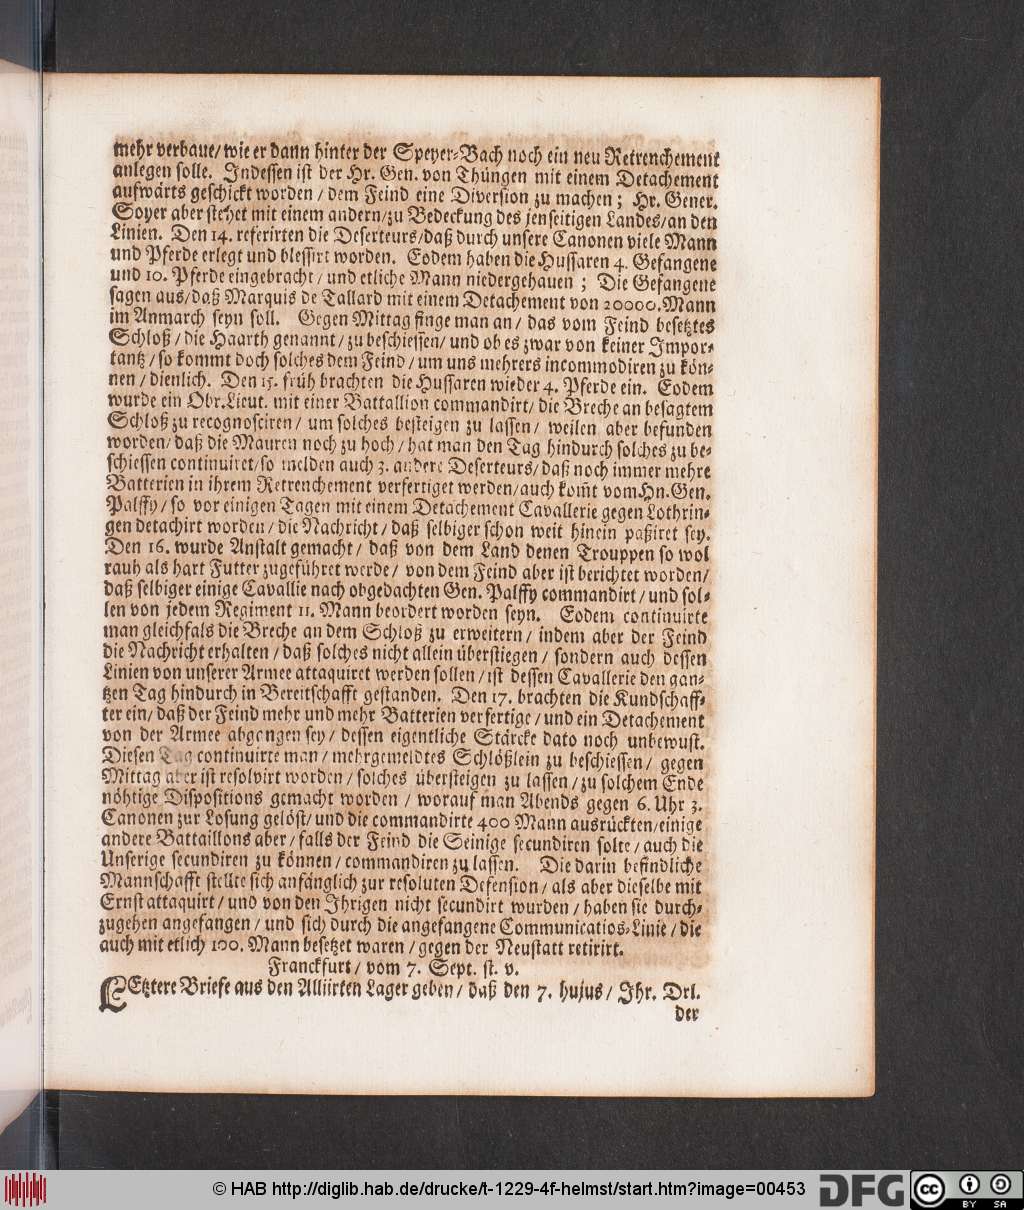 mehr verbaue/ wie er dann hinter der Speyer-Bach noch ein neu Retrenchement
anlegen solle. Indessen ist der Hr. Gen. von Thüngen mit einem Detachement
aufwärts geschickt worden / dem Feind eine Diversion zu machen ; Hr. Gener.
Soyer aber stehet mit einem andern/zu Bedeckung des jenseitigen Landes/an den
Linien. Den 14. referirten die Deserteurs/daß durch unsere Canonen viele Mann
und Pferde erlegt und blessirt worden. Eodem haben die Hussaren 4. Gefangene
und 10. Pferde eingebracht / und etliche Mann niedergehauen ; Die Gefangene
sagen aus/daß Marquis de Tallard mit einem Detachement von 20000. Mann
im Anmarch seyn soll. Gegen Mittag finge man an / das vom Feind besetztes
Schloß / die Haarth genannt / zu beschiessen/ und ob es zwar von keiner Impor-
tantz / so kommt doch solches dem Feind / um uns mehrers incommodiren zu kön-
nen / dienlich. Den 15. früh brachten die Hussaren wieder 4. Pferde ein. Eodem
wurde ein Obr. Lieut. mit einer Battallion commandirt/ die Breche an besagtem
Schloß zu recognosciren / um solches besteigen zu lassen / weilen aber befunden
worden/ daß die Mauren noch zu hoch / hat man den Tag hindurch solches zu be-
schiessen continuiret/so melden auch 3. andere Deserteurs/ daß noch immer mehre
Batterien in ihrem Retrenchement verfertiget werden/auch kom̃t vom Hn. Gen.
Palffy/ so vor einigen Tagen mit einem Detachement Cavallerie gegen Lothrin-
gen detachirt worden / die Nachricht / daß selbiger schon weit hinein paßiret sey.
Den 16. wurde Anstalt gemacht / daß von dem Land denen Trouppen so wol
rauh als hart Futter zugeführet werde / von dem Feind aber ist berichtet worden/
daß selbiger einige Cavallie nach obgedachten Gen. Palffy commandirt / und sol-
len von jedem Regiment 11. Mann beordert worden seyn. Eodem continuirte
man gleichfals die Breche an dem Schloß zu erweitern / indem aber der Feind
die Nachricht erhalten / daß solches nicht allein überstiegen / sondern auch dessen
Linien von unserer Armee attaquiret werden sollen / ist dessen Cavallerie den gan-
tzen Tag hindurch in Bereitschafft gestanden. Den 17. brachten die Kundschaff-
ter ein/ daß der Feind mehr und mehr Batterien verfertige / und ein Detachement
von der Armee abgangen sey / dessen eigentliche Stärcke dato noch unbewust.
Diesen Tag continuirte man / mehrgemeldtes Schlößlein zu beschiessen / gegen
Mittag aber ist resolvirt worden / solches übersteigen zu lassen / zu solchem Ende
nöhtige Dispositions gemacht worden / worauf man Abends gegen 6. Uhr 3.
Canonen zur Losung gelöst/ und die commandirte 400 Mann ausrückten/einige
andere Battaillons aber / falls der Feind die Seinige secundiren solte / auch die
Unserige secundiren zu können / commandiren zu lassen. Die darin befindliche
Mannschafft stellte sich anfänglich zur resoluten Defension / als aber dieselbe mit
Ernst attaquirt / und von den Ihrigen nicht secundirt wurden / haben sie durch-
zugehen angefangen / und sich durch die angefangene Communicatios-Linie / die
auch mit etlich 100. Mann besetzet waren / gegen der Neustatt retirirt.
Franckfurt / vom 7. Sept. st. v.
LEtztere Briefe aus den Alliirten Lager geben / daß den 7. hujus / Ihr. Drl.
der
© HAB http://diglib.hab.de/drucke/t-1229-4f-helmst/start.htm?image=00453
DFG
cc BY SA